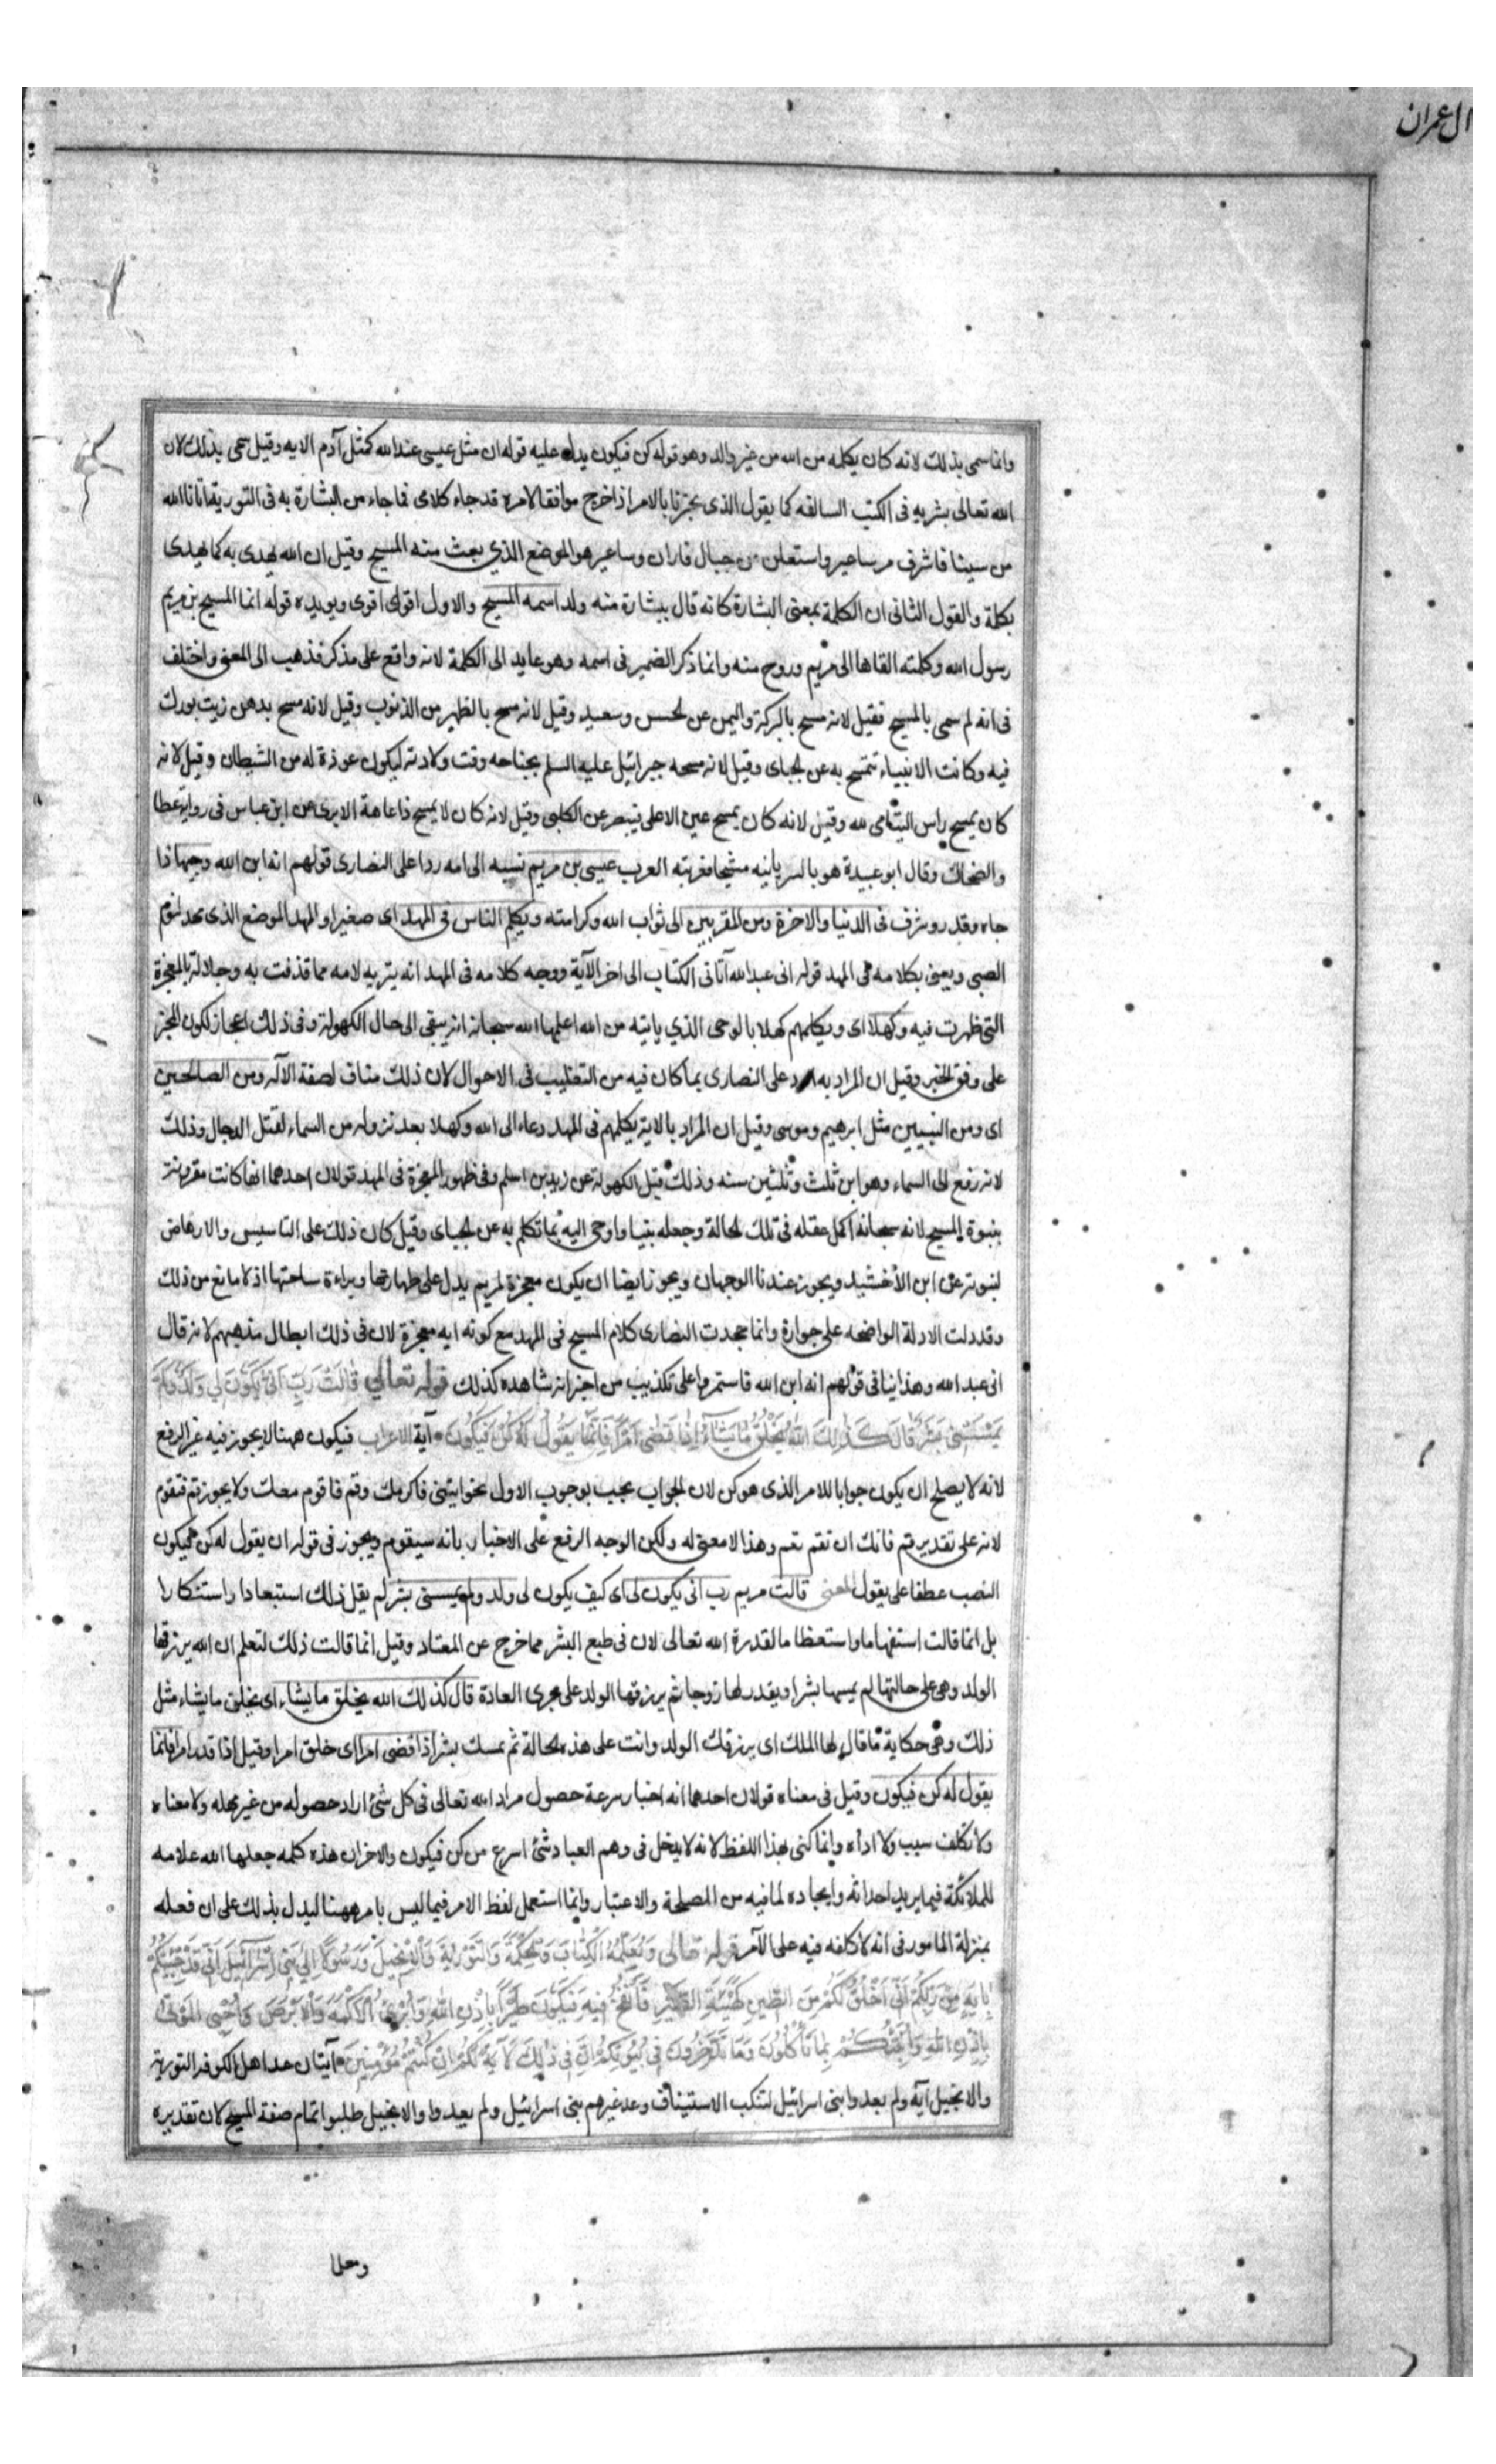 ال عمران
وانما سمى بذلك لانه كان بكلمه من الله من غير والد وهو قوله كن فيكون يدل عليه قوله ان مثل عيسى عند الله كمثل آدم الايه وقيل سمى بذلك لان
الله تعالى بشر به فى الكتب السالفه كما يقول الذى يخبرنا بالامر اذا خرج موافقا لامره قد جاء كلامى فما جاء من البشارة به فى التورية اتانا الله
من سينا فاشرق من ساعير واستعلن من جبال فاران وساعير هو الموضع الذي بعث منه المسيح وقيل ان الله يهدى به كما يهدى
بكلمة والقول الثانى ان الكلمة بمعنى البشارة كانه قال ببشارة منه ولد اسمه المسيح والاول اقوى ويويده قوله انما المسيح بن مريم
رسول الله وكلمته القاها الى مريم وروح منه وانما ذكر الضمير فى اسمه وهو عايد الى الكلمة لانه واقع على مذكر فذهب الى المعنى واختلف
فى انه لم سمى بالمسيح فقيل لانه مسح بالبركة واليمن عن الحسن وسعيد وقيل لانه مسح بالتطهير من الذنوب وقيل لانه مسح بدهن زيت بورك
فيه وكانت الانبياء تتمسح به عن الجباى وقيل لانه مسحه جبرائيل عليه السلم بجناحه وقت ولادته ليكون عوذة له من الشيطان وقيل لانه
كان يمسح راس اليتامى لله وقيل لانه كان يمسح عين الاعمى فيبصر عن الكلبى وقيل لانه كان لا يمسح ذا عاهة الا برى عن ابن عباس فى رواية عطا
والضحاك وقال ابو عبيدة هو بالسريانيه مشيحا فعربته العرب عيسى بن مريم نسبه الى امه ردا على النصارى قولهم انه ابن الله وجيها ذا
جاه وقدر وشرف فى الدنيا والاخرة ومن المقربين الى ثواب الله وكرامته ويكلم الناس فى المهد اى صغيرا والمهد الموضع الذى يمهد لنوم
الصبى ويعنى بكلامه فى المهد قوله انى عبد الله آتانى الكتاب الى اخر الآية ووجه كلامه فى المهد انه تبريه لامه مما قذفت به وجلالة بالمعجزة
التى ظهرت فيه وكهلا اى ويكلمهم كهلا بالوحى الذي ياتيه من الله اعلمها الله سبحانه انه يبقى الى حال الكهولة وفى ذلك اعجاز لكون المخبر
على وفق الخبر وقيل ان المراد به الرد على النصارى بما كان فيه من التقليب فى الاحوال لان ذلك مناف لصفة الآله ومن الصالحين
اى ومن النبيين مثل ابرهيم وموسى وقيل ان المراد بالاية يكلمهم فى المهد دعاء الى الله وكهلا بعد نزوله من السماء لقتل الدجال وذلك
لانه رفع الى السماء وهو ابن ثلث وثلثين سنه وذلك قبل الكهولة عن زيد بن اسلم وفى ظهور المعجزة فى المهد قولان احدهما انها كانت مقرونة
بنبوة المسيح لانه سبحانه اكمل عقله فى تلك الحالة وجعله نبيا واوحى اليه بما تكلم به عن الجباى وقيل كان ذلك على التاسيس والارهاص
لنبوته عن ابن الأخشيد ويجوز عندنا الوجهان ويجوز ايضا ان يكون معجزة لمريم يدل على طهارتها وبراءة ساحتها اذ لا مانع من ذلك
وقد دلت الادلة الواضحه على جوازه وانما جحدت النصارى كلام المسيح فى المهد مع كونه ايه معجزة لان فى ذلك ابطال مذهبهم لانه قال
انى عبد الله وهذا ينافى قولهم انه ابن الله فاستمروا على تكذيب من اخبر انه شاهده كذلك قوله تعالي قَالَتْ رَبِّ اَنّى يَكُونُ لي وَلَدٌ وَلَمْ
يَمْسَسْنِي بَشَرٌ قَالَ كَذٰلِكَ اللّٰهُ يَخْلُقُ مَا يَشَاءُ اِذَا قَضٰى اَمْرًا فَاِنَّمَا يَقُولُ لَهُ كُنْ فَيَكُونُ آية الاعراب فيكون ههنا لا يجوز فيه غير الرفع
لانه لا يصلح ان يكون جوابا للامر الذى هو كن لان الجواب يجب بوجوب الاول نحو ايتنى فاكرمك وقم فاقوم معك ولا يجوز قم فتقوم
لانه على تقدير قم فانك ان تقم تقم وهذا لا معنى له ولكن الوجه الرفع على الاخبار بانه سيقوم ويجوز فى قوله ان يقول له كن فيكون
النصب عطفا على يقول المعنى قالت مريم رب انى يكون لى اى كيف يكون لى ولد ولم يمسسنى بشر لم يقل ذلك استبعادا واستنكارا
بل انما قالت استفهاما واستعظاما لقدرة الله تعالى لان فى طبع البشر مما خرج عن المعتاد وقيل انما قالت ذلك لتعلم ان الله يرزقها
الولد وهى على حالتها لم يمسها بشر او يقدر لها زوجا ثم يرزقها الولد على مجرى العادة قال كذلك الله يخلق ما يشاء اى يخلق ما يشاء مثل
ذلك وهى حكاية ما قال لها الملك اى يرزقك الولد وانت على هذه الحالة لم يمسك بشر اذا قضى امرا اى خلق امرا وقيل اذا قدر امرا فانما
يقول له كن فيكون وقيل فى معناه قولان احدهما انه اخبار بسرعة حصول مراد الله تعالى فى كل شئ اراد حصوله من غير مهله ولا معناه
ولا تكلف سبب ولا اداه وانما كنى بهذا اللفظ لانه لا يدخل فى وهم العباد شئ اسرع من كن فيكون والاخر ان هذه كلمه جعلها الله علامه
للملائكة فيما يريد احداثه وايجاده لما فيه من المصلحة والاعتبار وانما استعمل لفظ الامر فيما ليس بامر ههنا ليدل بذلك على ان فعله
بمنزلة المامور فى انه لا كلفه فيه على الآمر قوله تعالى وَيُعَلِّمُهُ الْكِتَابَ وَالْحِكْمَةَ وَالتَّوْرٰيةَ وَالْاِنْجِيلَ وَرَسُولًا اِلىٰ بَنِي اِسْرَائِيلَ اَنِّي قَدْ جِئْتُكُمْ
بِاٰيَةٍ مِنْ رَبِّكُمْ اَنِّي اَخْلُقُ لَكُمْ مِنَ الطِّينِ كَهَيْئَةِ الطَّيْرِ فَاَنْفُخُ فِيهِ فَيَكُونُ طَيْرًا بِاِذْنِ اللّٰهِ وَاُبْرِئُ الْاَكْمَهَ وَالْاَبْرَصَ وَاُحْيِي الْمَوْتىٰ
بِاِذْنِ اللّٰهِ وَاُنَبِّئُكُمْ بِمَا تَأْكُلُونَ وَمَا تَدَّخِرُونَ فِي بُيُوتِكُمْ اِنَّ فِي ذٰلِكَ لَاٰيَةً لَكُمْ اِنْ كُنْتُمْ مُؤْمِنِينَ آيتان عد اهل الكوفه التورية
والانجيل آية ولم يعدوا بنى اسرائيل لتنكب الاستيناف وعد غيرهم بنى اسرائيل ولم يعدوا والانجيل طلبوا تمام صفة المسيح لان تقديره